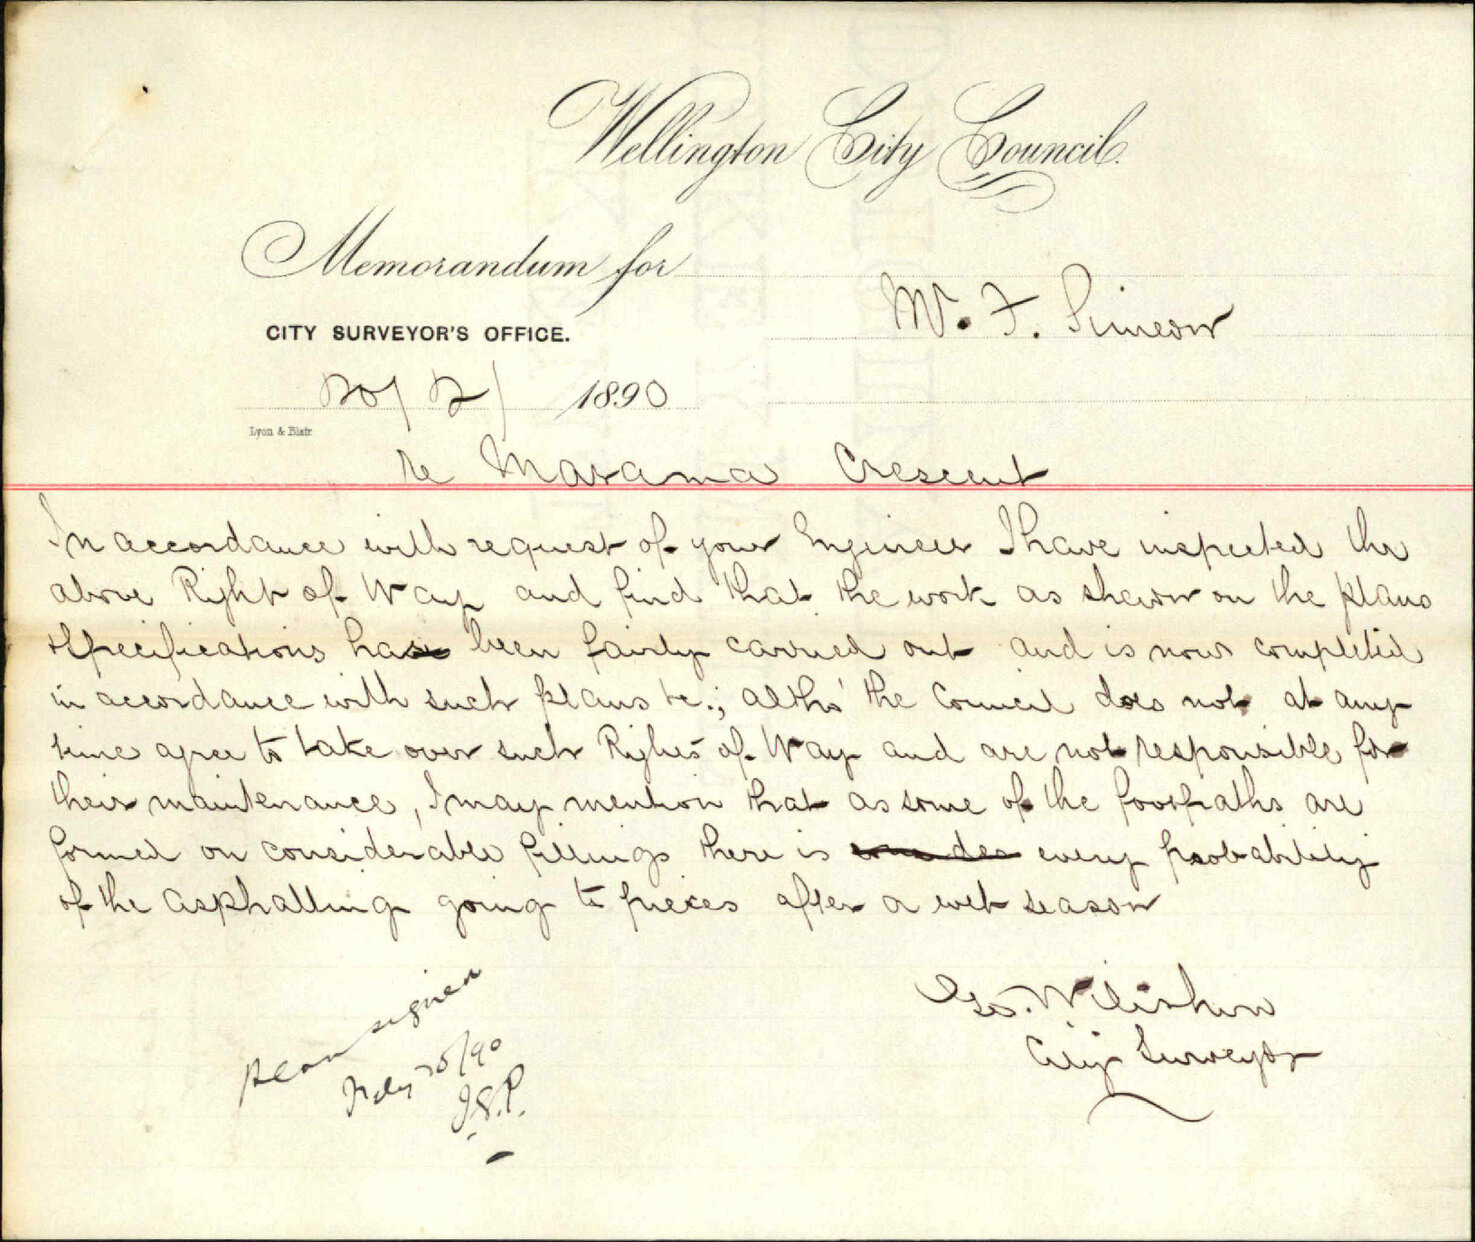 Wellington City Council.
Memorandum for
Mr. F. Simeon
CITY SURVEYOR'S OFFICE.
20/2/ 1890
Lyon & Blair
re Marama Crescent
In accordance with request of your Engineer I have inspected the
above Right of Way and find that the work as shewn on the plans
& specifications has been fairly carried out and is now completed
in accordance with such plans &c.; altho' the Council does not at any
time agree to take over such Rights of Way and are not responsible for
their maintenance, I may mention that as some of the footpaths are
formed on considerable fillings there is every probability
of the asphalting going to pieces after a wet season
Geo. Wiltshire
City Surveyor
plan signed
Feby /90
J.S.P.